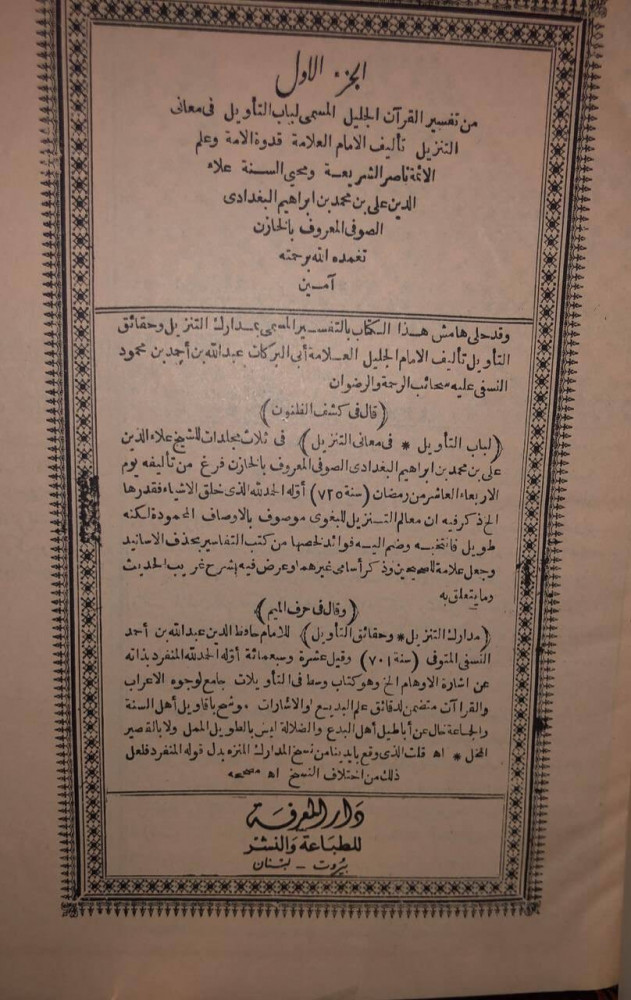 الجزء الاول
من تفسير القرآن الجليل المسمى لباب التأويل فى معانى
التنزيل تأليف الامام العلامة قدوة الامة وعلم
الائمة ناصر الشريعة ومحيى السنة علاء
الدين على بن محمد بن ابراهيم البغدادى
الصوفى المعروف بالخازن
تغمده الله برحمته
آمين
وقد حلى هامش هذا الكتاب بالتفسير المسمى بمدارك التنزيل وحقائق
التأويل تأليف الامام الجليل العلامة أبى البركات عبدالله بن أحمد بن محمود
النسفى عليه سحائب الرحمة والرضوان
(قال فى كشف الظنون)
(لباب التأويل * فى معانى التنزيل) فى ثلاث مجلدات للشيخ علاء الدين
على بن محمد بن ابراهيم البغدادى الصوفى المعروف بالخازن فرغ من تأليفه يوم
الاربعاء العاشر من رمضان (سنة ٧٢٥) أوله الحمد لله الذى خلق الاشياء فقدرها
الخ ذكر فيه ان معالم التنزيل للبغوى موصوف بالاوصاف المحمودة لكنه
طويل فانتخبه وضم اليه فوائد لخصها من كتب التفاسير بحذف الاسانيد
وجعل علامة للصحيحين وذكر أسامى غيرهما وعرض فيه بشرح غريب الحديث
وما يتعلق به
(وقال فى حرف الميم)
(مدارك التنزيل * وحقائق التأويل) للامام حافظ الدين عبدالله بن أحمد
النسفى المتوفى (سنة ٧٠١) وقيل عشرة وسبعمائة أوله الحمد لله المنفرد بذاته
عن اشارة الاوهام الخ وهو كتاب وسط فى التأويلات جامع لوجوه الاعراب
والقرا آت متضمن لدقائق علم البديع والاشارات موشح بأقاويل أهل السنة
والجماعة خال عن أباطيل أهل البدع والضلالة ليس بالطويل الممل ولا بالقصير
المخل * اه قلت الذى وقع بايدينا من نسخ المدارك المنزه بدل قوله المنفرد فلعل
ذلك من اختلاف النسخ اه مصححه
دار المعرفة
للطباعة والنشر
بيروت - لبنان